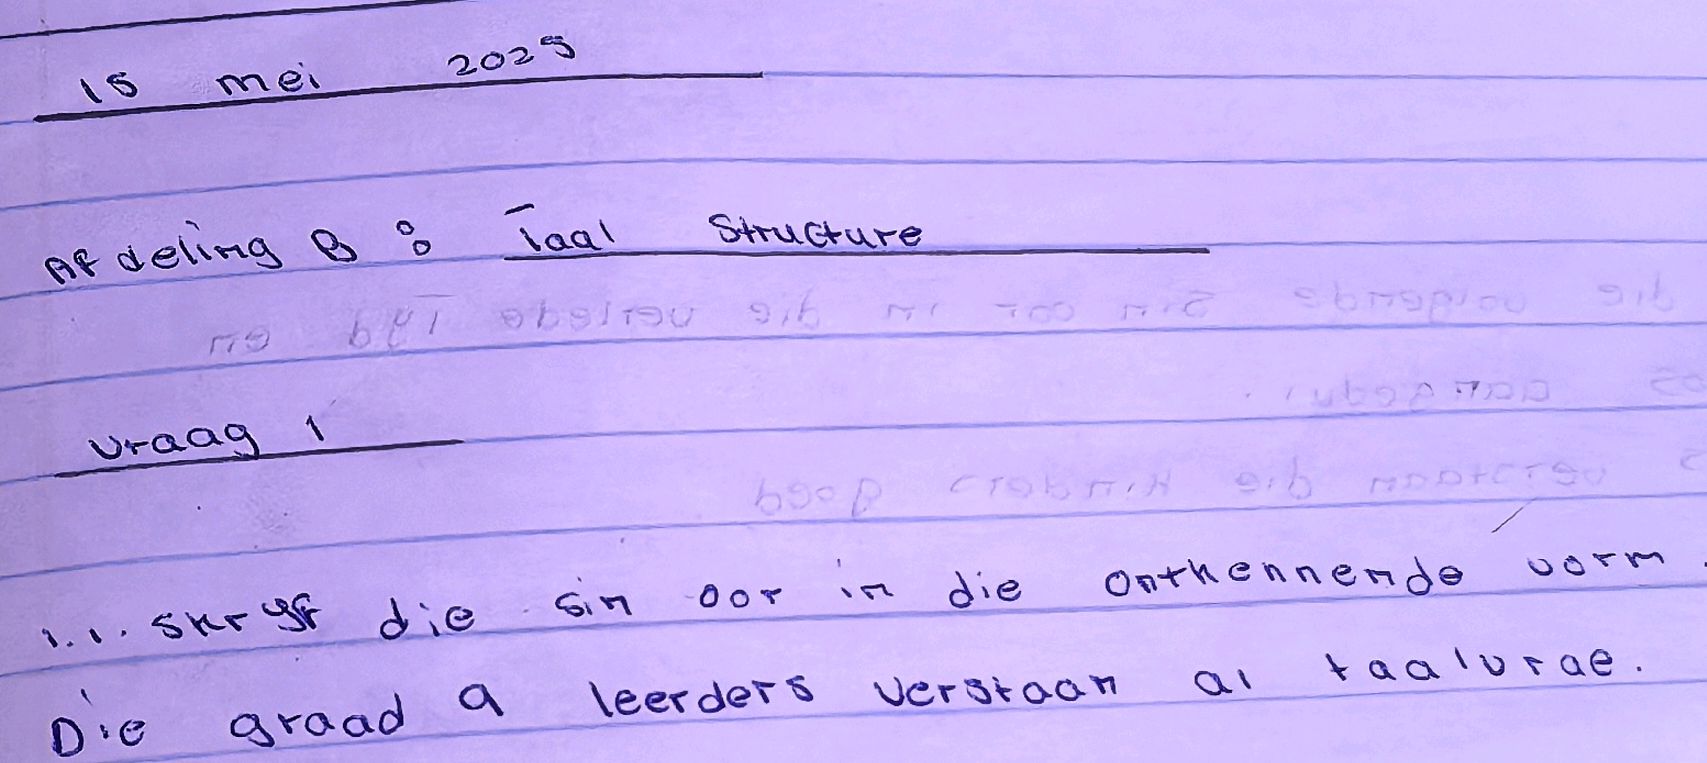 15 mei 2025
Afdeling B : Taal Structure
vraag 1
1.1. skryf die sin oor in die ontkennende vorm.
Die graad 9 leerders verstaan al taalvrae.